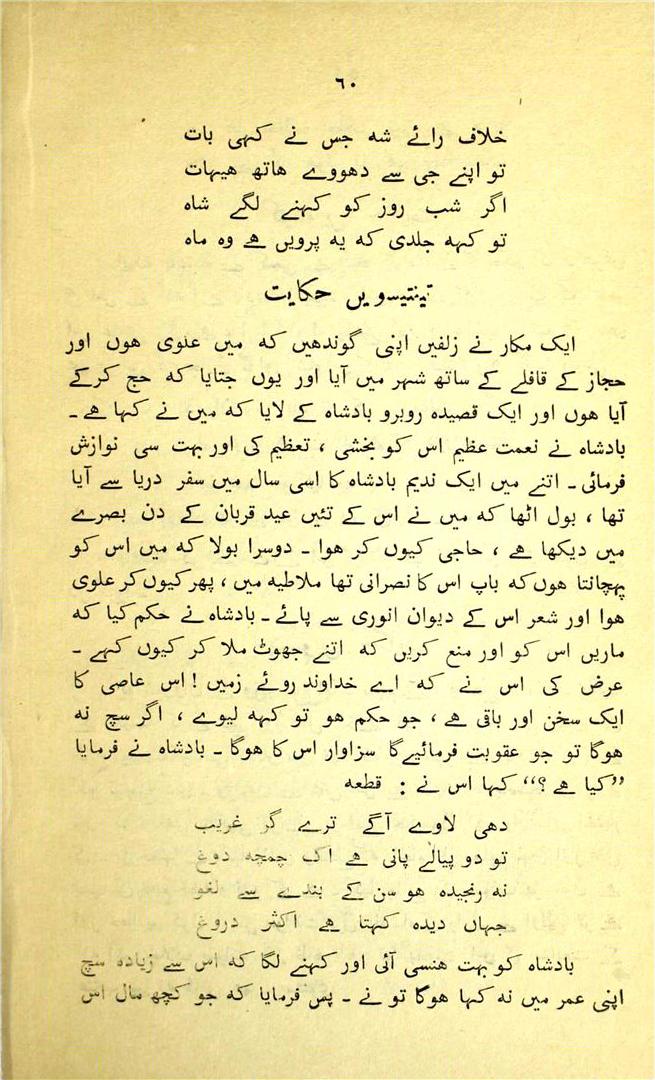 ٦٠
خلاف رائے شہ جس نے کہی بات
تو اپنے جی سے دھووے ھاتھ ھیہات
اگر شب روز کو کہنے لگے شاہ
تو کہہ جلدی کہ یہ پرویں ھے وہ ماہ
تینتیسویں حکایت
ایک مکار نے زلفیں اپنی گوندھیں کہ میں علوی ھوں اور
حجاز کے قافلے کے ساتھ شہر میں آیا اور یوں جتایا کہ حج کرکے
آیا ھوں اور ایک قصیدہ روبرو بادشاہ کے لایا کہ میں نے کہا ھے ۔
بادشاہ نے نعمت عظیم اس کو بخشی ، تعظیم کی اور بہت سی نوازش
فرمائی ۔ اتنے میں ایک ندیم بادشاہ کا اسی سال میں سفر دریا سے آیا
تھا ، بول اٹھا کہ میں نے اس کے تئیں عید قربان کے دن بصرے
میں دیکھا ھے ، حاجی کیوں کر ھوا ۔ دوسرا بولا کہ میں اس کو
پہچانتا ھوں کہ باپ اس کا نصرانی تھا ملاطیہ میں ، پھر کیوں کر علوی
ھوا اور شعر اس کے دیوان انوری سے پائے ۔ بادشاہ نے حکم کیا کہ
ماریں اس کو اور منع کریں کہ اتنے جھوٹ ملا کر کیوں کہے ۔
عرض کی اس نے کہ اے خداوند روئے زمیں ! اس عاصی کا
ایک سخن اور باقی ھے ، جو حکم ھو تو کہہ لیوے ، اگر سچ نہ
ھوگا تو جو عقوبت فرمائیےگا سزاوار اس کا ھوگا ۔ بادشاہ نے فرمایا
”کیا ھے ؟“ کہا اس نے : قطعہ
دھی لاوے آگے ترے گر غریب
تو دو پیالے پانی ھے اک چمچہ دوغ
نہ رنجیدہ ھو سن کے بندے سے لغو
جہاں دیدہ کہتا ھے اکثر دروغ
بادشاہ کو بہت ھنسی آئی اور کہنے لگا کہ اس سے زیادہ سچ
اپنی عمر میں نہ کہا ھوگا تو نے ۔ پس فرمایا کہ جو کچھ مال اس